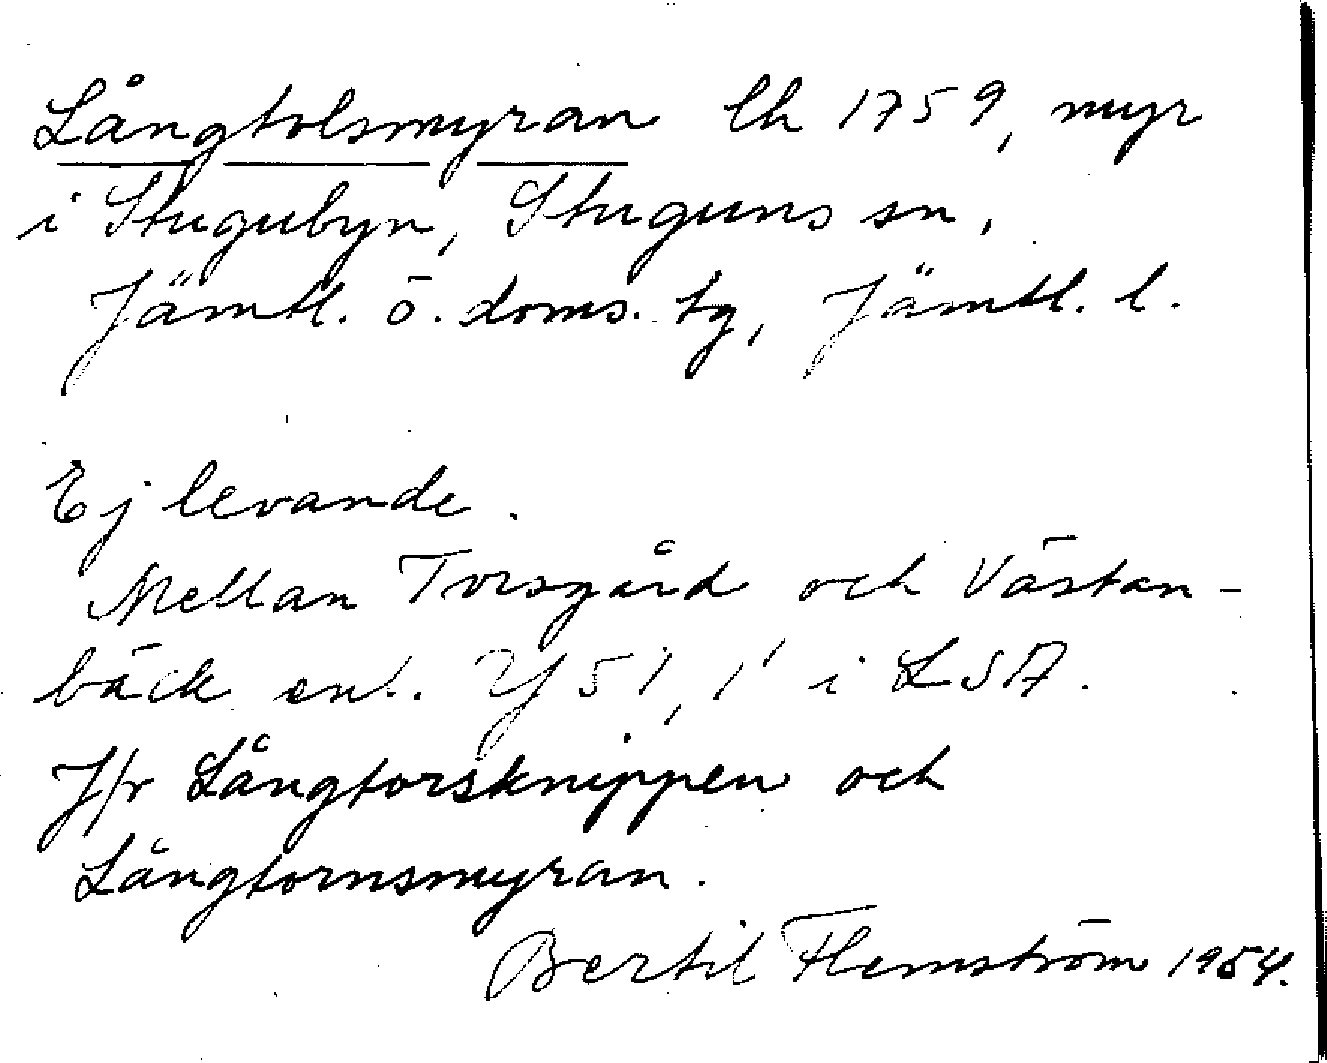 Långtolsmyran lh 1759, myr
i Stugubyn, Stuguns sn,
Jämtl. ö. doms. tg, Jämtl. l.
Ej levande.
Mellan Torsgård och Västan-
bäck enl. Y 51, 1 i LSA.
Jfr Långtorsknippen och
Långtornsmyran.
Bertil Flemström 1954.